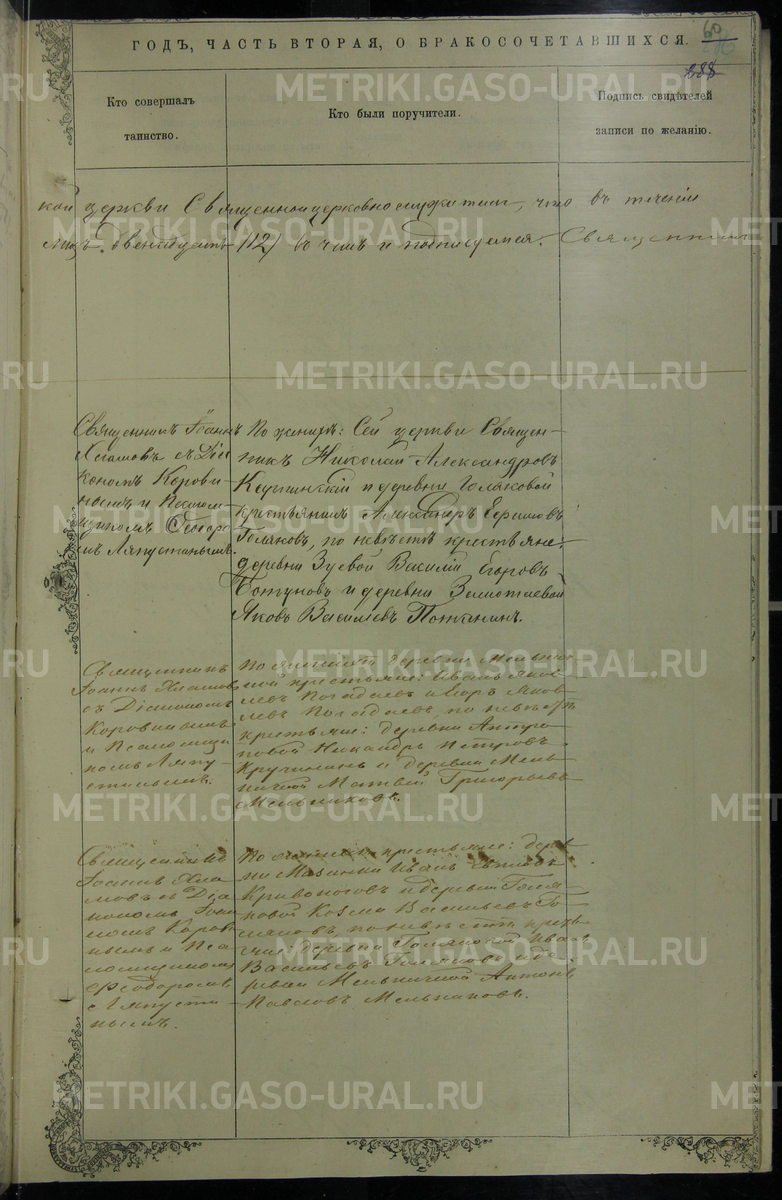 ГОДЪ, ЧАСТЬ ВТОРАЯ, О БРАКОСОЧЕТАВШИХСЯ.
60
288
Кто совершалъ
таинство.
Кто были поручители.
Подпись свидѣтелей
записи по желанію.
кой церкви Священноицерковнослужители, что въ теченіи
двенадцать (12) въ чемъ и подписуемся. Священникъ
Священникъ Іоаннъ
Хламовъ съ Діа
кономъ Корови
нымъ и Псалом-
щикомъ Ѳеодоро
мъ Ляпустинымъ.
По женихѣ: Сей церкви Священ-
никъ Николай Александровъ
и деревни Голяковой
крестьянинъ Александръ Ефимовъ
Голяковъ, по невѣстѣ крестьяне:
деревни Зуевой Василій Егоровъ
и деревни
Яковъ Васильевъ
Священникъ
Іоаннъ Хламов
съ Діакономъ
Коровинымъ
и Псаломщи
комъ Ляпу
стинымъ.
По женихѣ деревни Мельнич
ной крестьяне: Иванъ Яков
левъ Погадаевъ и Яков
левъ Погадаевъ, по невѣстѣ
крестьяне: деревни
Никандръ Петровъ
Кручининъ и деревни Мель
ничной Матвей Григорьевъ
Мельниковъ.
Священникъ
Іоаннъ Хла
мовъ съ Діа
кономъ Іоан
номъ Коров
нымъ и Пса
ломщикомъ
Ѳеодоромъ
Ляпусти
нымъ.
По женихѣ крестьяне: дерев
ни Иванъ
Кривоноговъ и деревни Голя
ковой Козма Васильевъ Го
ляковъ, по невѣстѣ кресть
яне: деревни Голяковой Иванъ
Васильевъ Голяковъ и де
ревни Мельничной Антонъ
Павловъ Мельниковъ.
METRIKI.GASO-URAL.RU